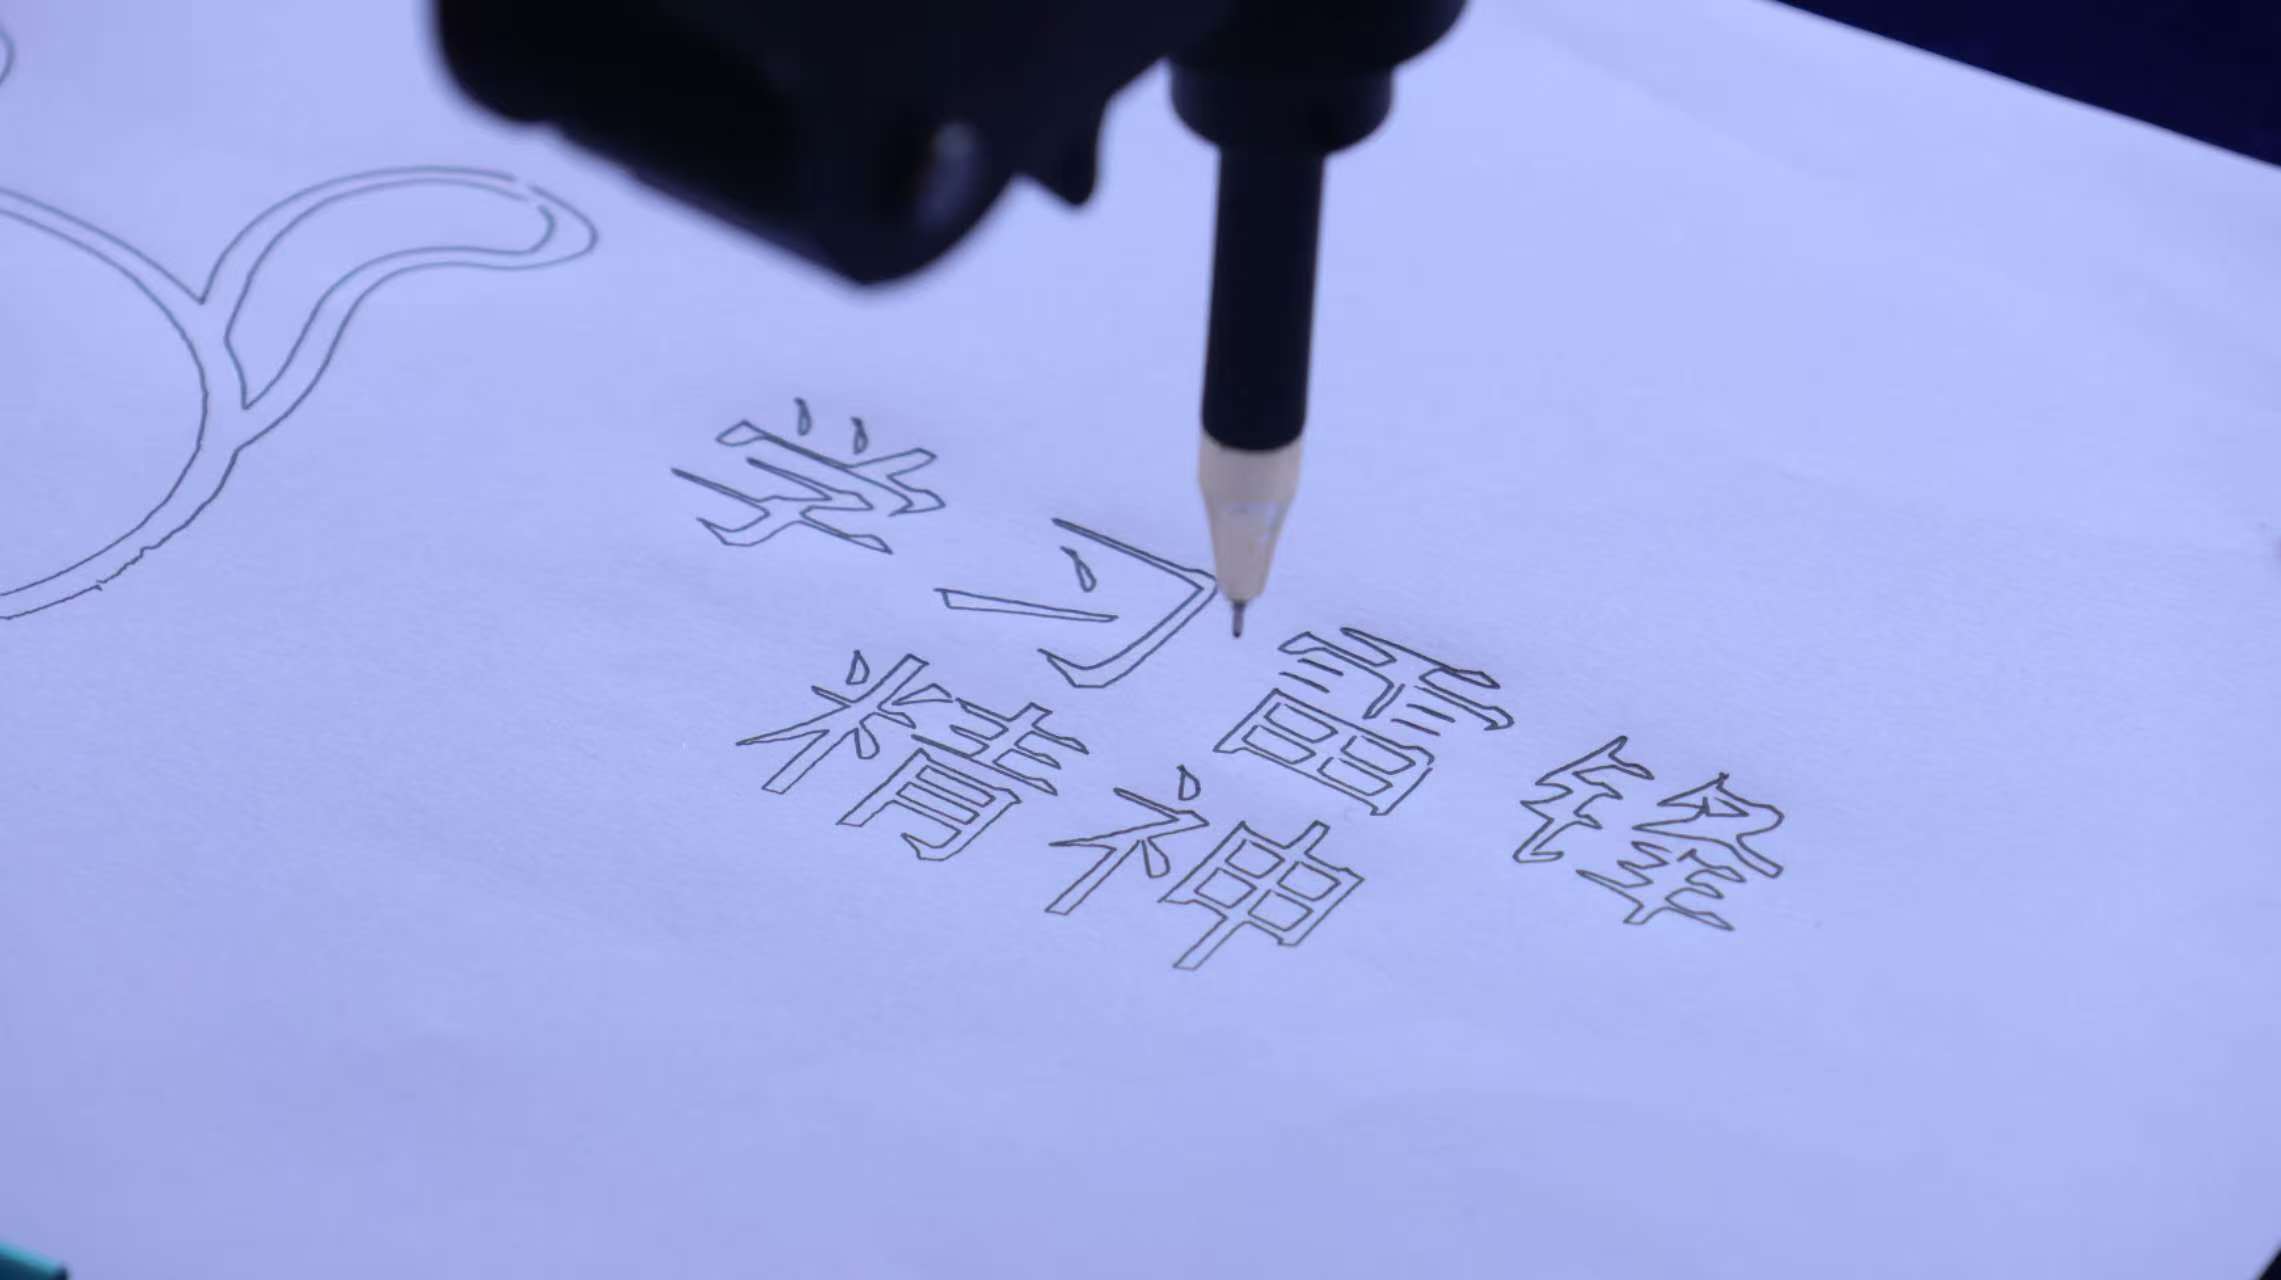 学习雷锋
精神